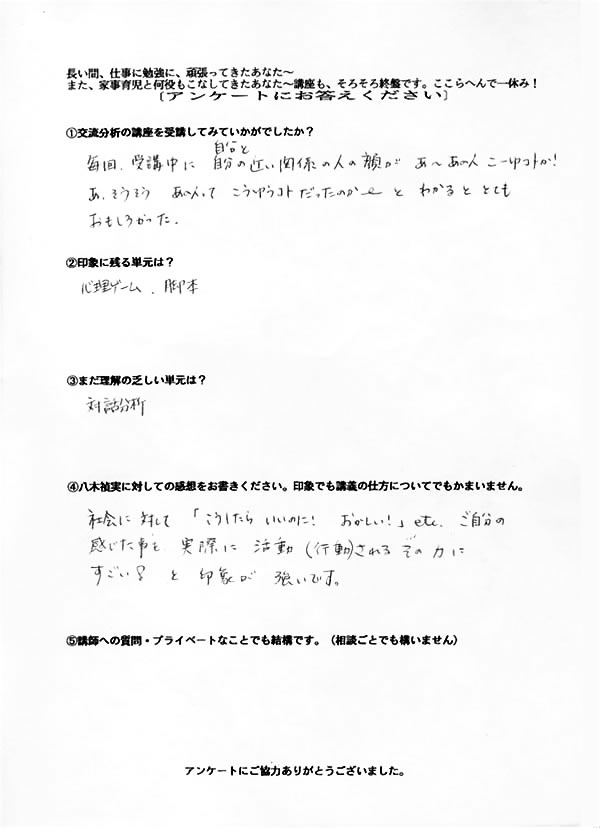 長い間、仕事に勉強に、頑張ってきたあなた~
また、家事育児と何役もこなしてきたあなた~講座も、そろそろ終盤です。ここらへんで一休み!
[アンケートにお答えください]
①交流分析の講座を受講してみていかがでしたか?
自分と
毎回、受講中に 自分の近い関係の人の顔が あ~あの人 こーゆうコトか!
あ、そうそう あの人って こうゆうコトだったのかe と わかると とても
おもしろかった。
②印象に残る単元は?
心理ゲーム、脚本
③まだ理解の乏しい単元は?
対話分析
④八木禎実に対しての感想をお書きください。印象でも講義の仕方についてでもかまいません。
社会に対して 「こうしたら いいのに! おかしい!」etc. ご自分の
感じた事を 実際に 活動(行動)される その力に
すごい! と 印象が 強いです。
⑤講師への質問・プライベートなことでも結構です。(相談ごとでも構いません)
アンケートにご協力ありがとうございました。